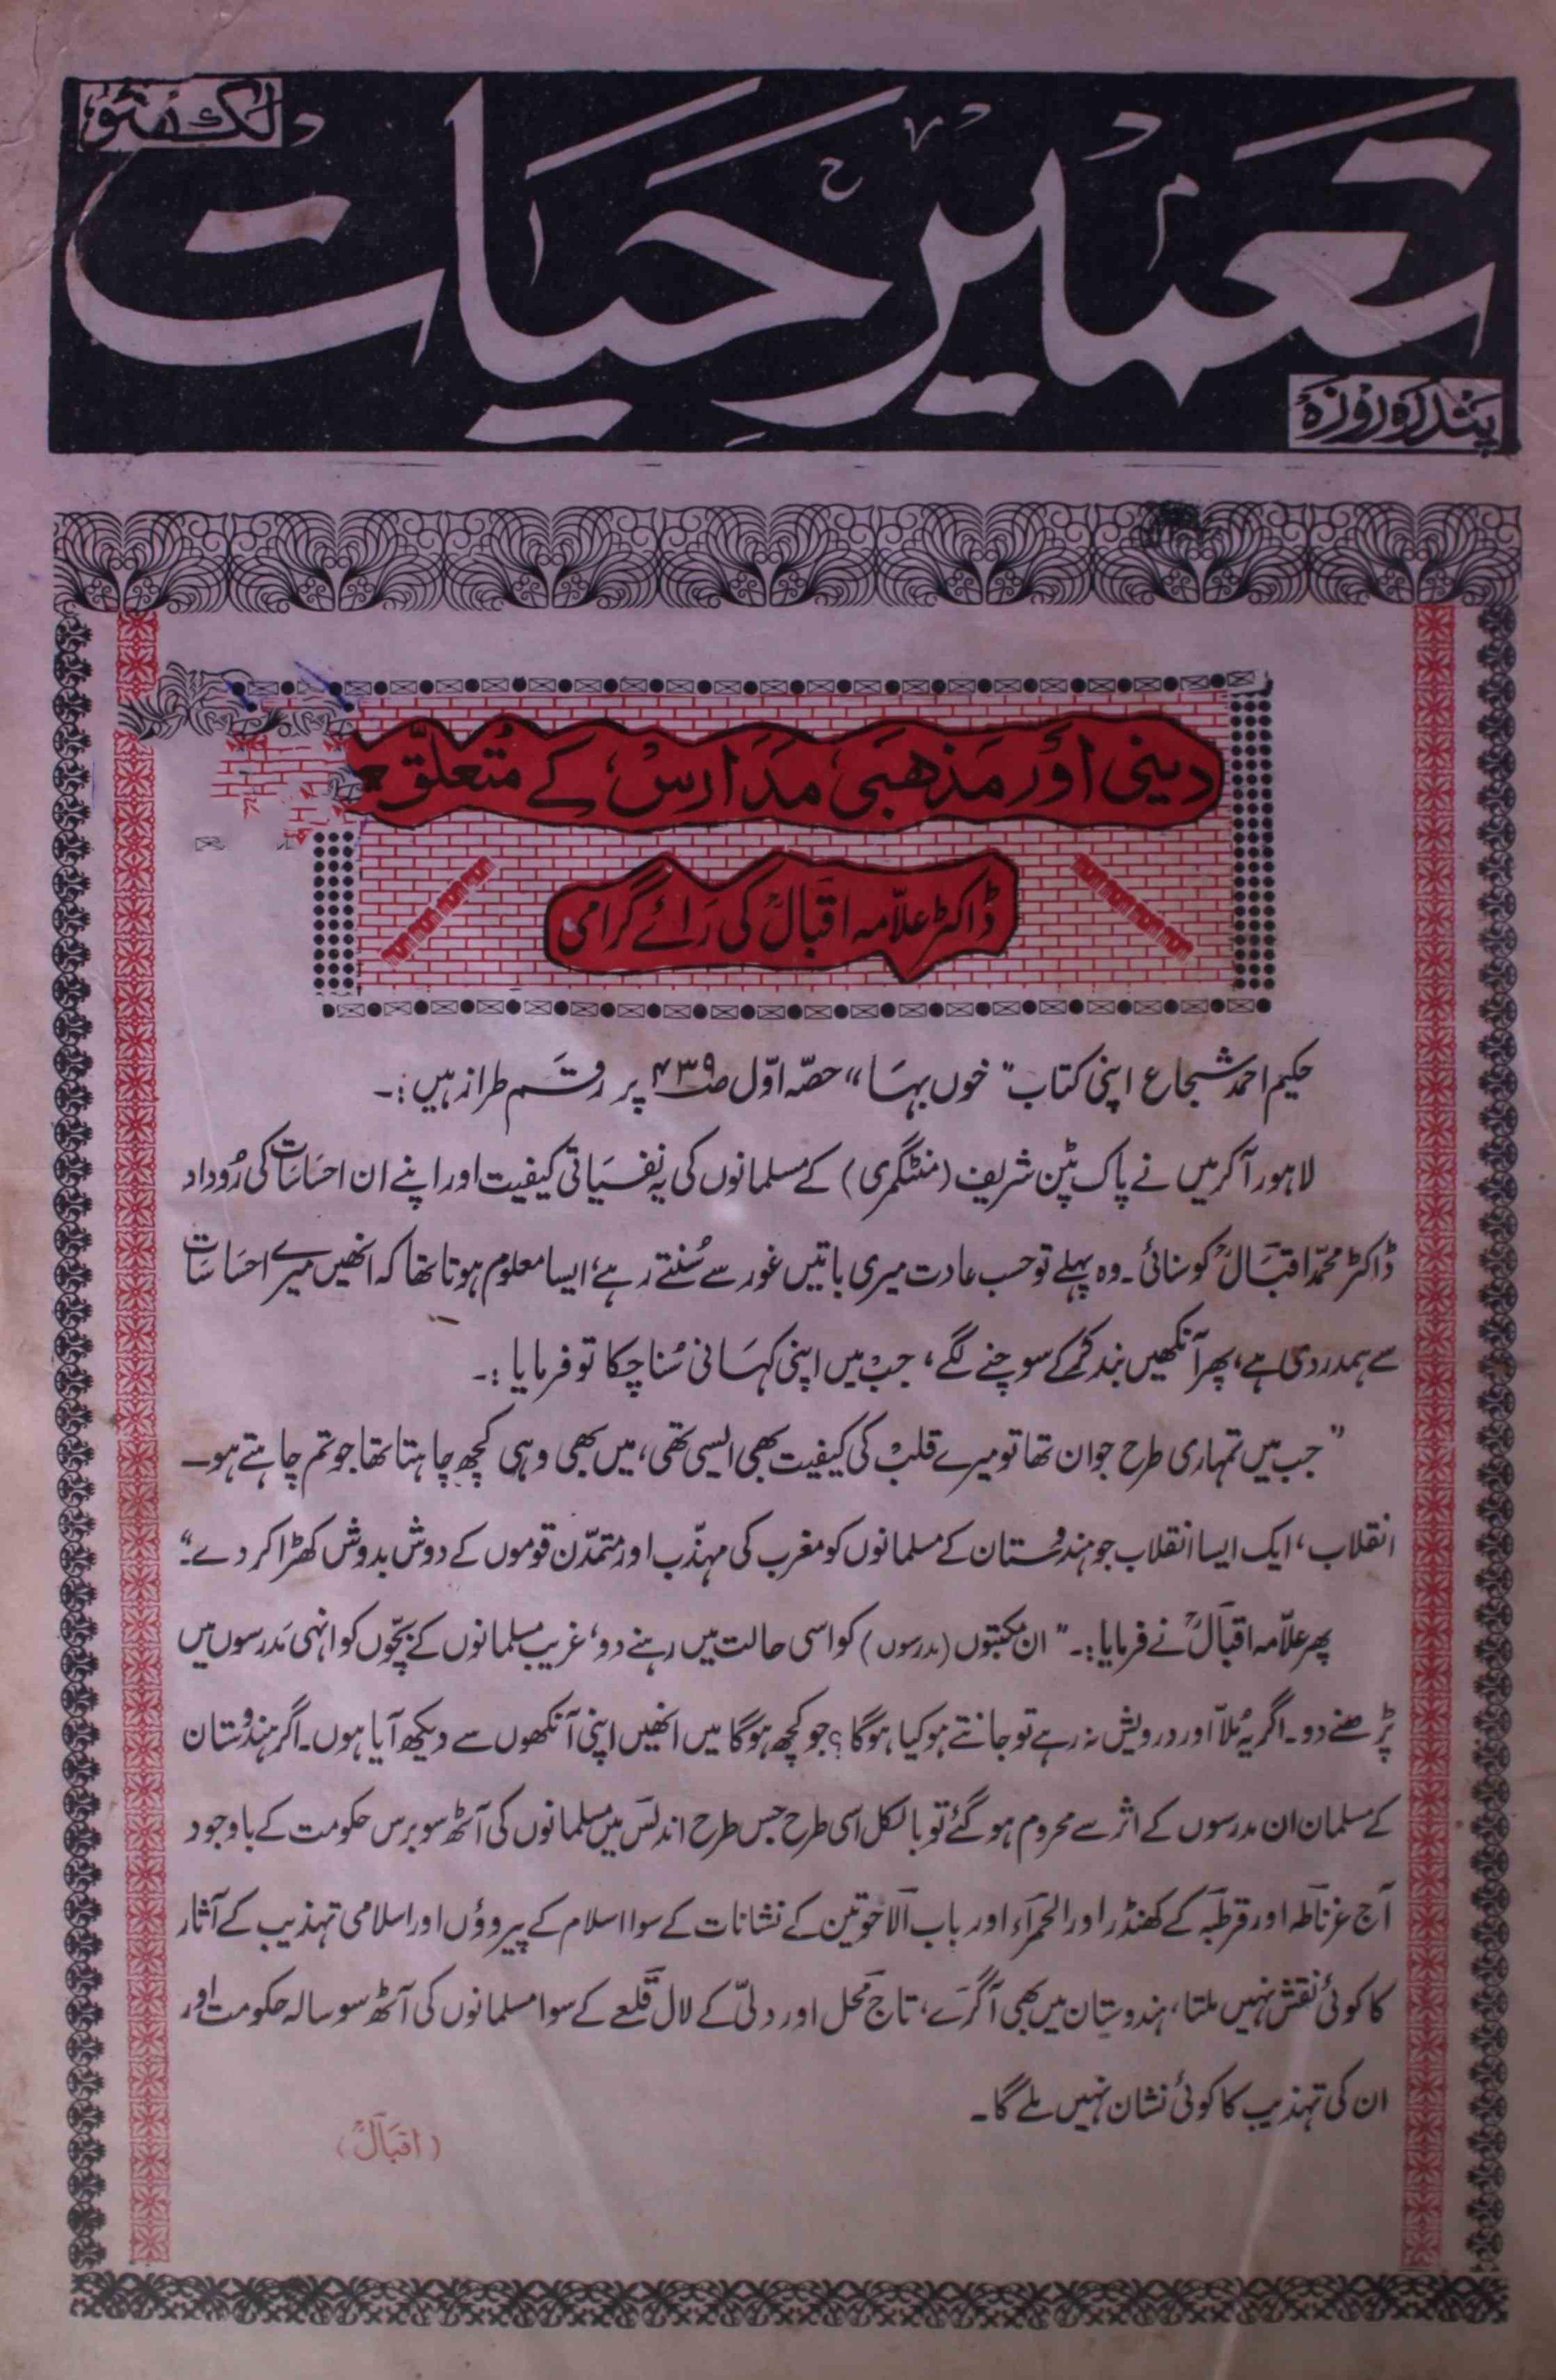 لکھنؤ
تعمیر حیات
پندرہ روزہ
دینی اور مذھبی مدارس کے متعلق
ڈاکٹر علامہ اقبالؒ کی رائے گرامی
حکیم احمد شجاع اپنی کتاب "خوں بہا" حصہ اوّل ص۴۳۹ پر رقم طراز ہیں:۔
لاہور آکر میں نے پاک پٹن شریف (منٹگمری) کے مسلمانوں کی یہ نفسیاتی کیفیت اور اپنے ان احساسات کی رُوداد
ڈاکٹر محمد اقبالؒ کو سنائی۔ وہ پہلے تو حسب عادت میری باتیں غور سے سُنتے رہے، ایسا معلوم ہوتا تھا کہ انھیں میرے احساسات
سے ہمدردی ہے، پھر آنکھیں بند کرکے سوچنے لگے، جب میں اپنی کہانی سُنا چکا تو فرمایا:۔
"جب میں تمہاری طرح جوان تھا تو میرے قلب کی کیفیت بھی ایسی تھی، میں بھی وہی کچھ چاہتا تھا جو تم چاہتے ہو۔
انقلاب، ایک ایسا انقلاب جو ہندوستان کے مسلمانوں کو مغرب کی مہذّب اور متمدّن قوموں کے دوش بدوش کھڑا کر دے۔"
پھر علّامہ اقبالؒ نے فرمایا:۔ "ان مکتبوں (مدرسوں) کو اسی حالت میں رہنے دو، غریب مسلمانوں کے بچّوں کو انہی مدرسوں میں
پڑھنے دو۔ اگر یہ مُلّا اور درویش نہ رہے تو جانتے ہو کیا ہوگا؟ جو کچھ ہوگا میں انھیں اپنی آنکھوں سے دیکھ آیا ہوں۔ اگر ہندوستان
کے مسلمان ان مدرسوں کے اثر سے محروم ہوگئے تو بالکل اسی طرح جس طرح اندلس میں مسلمانوں کی آٹھ سو برس حکومت کے باوجود
آج غرناطہ اور قرطبہ کے کھنڈر اور الحمرآء اور باب الاخوتین کے نشانات کے سوا اسلام کے پیروؤں اور اسلامی تہذیب کے آثار
کا کوئی نقش نہیں ملتا، ہندوستان میں بھی آگرے، تاج محل اور دلّی کے لال قلعے کے سوا مسلمانوں کی آٹھ سو سالہ حکومت اور
ان کی تہذیب کا کوئی نشان نہیں ملے گا۔
(اقبالؒ)